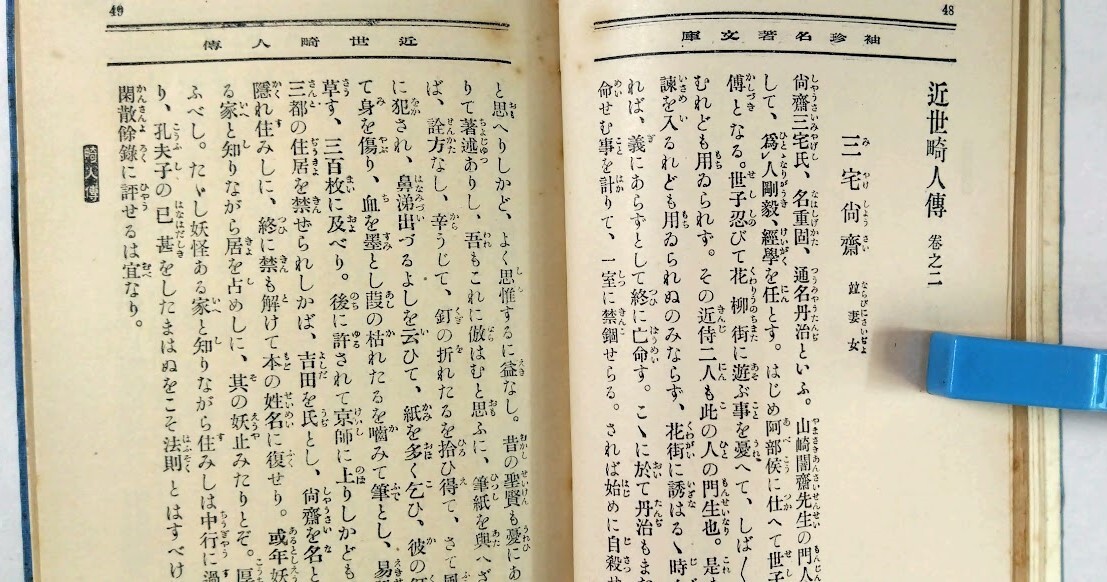 48
袖珍名著文庫
近世畸人傳 巻之二
三宅尙齋 竝妻女
尙齋三宅氏、名重固、通名丹治といふ。山崎闇齋先生の門人
して、爲人剛毅、經學を任とす。はじめ阿部侯に仕へて世子
傅となる。世子忍びて花柳街に遊ぶ事を憂へて、しば〱
むれども用ゐられず。その近侍二人も此の人の門生也。是
諫を入るれども用ゐられぬのみならず、花街に誘はるゝ時
れば、義にあらずとして終に亡命す。こゝに於て丹治もま
命せむ事を計りて、一室に禁錮せらる。されば始めに自殺せ
49
近世畸人傳
と思へりしかど、よく思惟するに益なし。昔の聖賢も憂にあ
りて著述ありし、吾もこれに倣はむと思ふに、筆紙を與へざ
ば、詮方なし、辛うじて、釘の折れたるを拾ひ得て、さて風
に犯され、鼻涕出づるよしを云ひて、紙を多く乞ひ、彼の釘
て身を傷り、血を墨とし葭の枯れたるを嚙みて筆とし、易
草す、三百枚に及べり。後に許されて京師に上りしかども
三都の住居を禁ぜられしかば、吉田を氏とし、尙齋を名と
隱れ住みしに、終に禁も解けて本の姓名に復せり。或年妖
る家と知りながら居を占めしに、其の妖止みたりとぞ。厚
ふべし。たゞし妖怪ある家と知りながら住みしは中行に過
り、孔夫子の已甚をしたまはぬをこそ法則とはすべけ
閑散餘錄に評せるは宜なり。
畸人傳